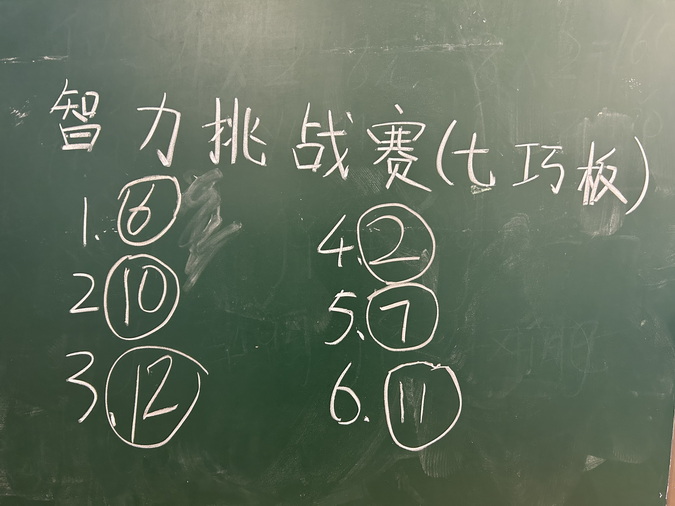 智力挑战赛(七巧板)
1.⑥
2 ⑩
3 ⑫
4.②
5.⑦
6.⑪